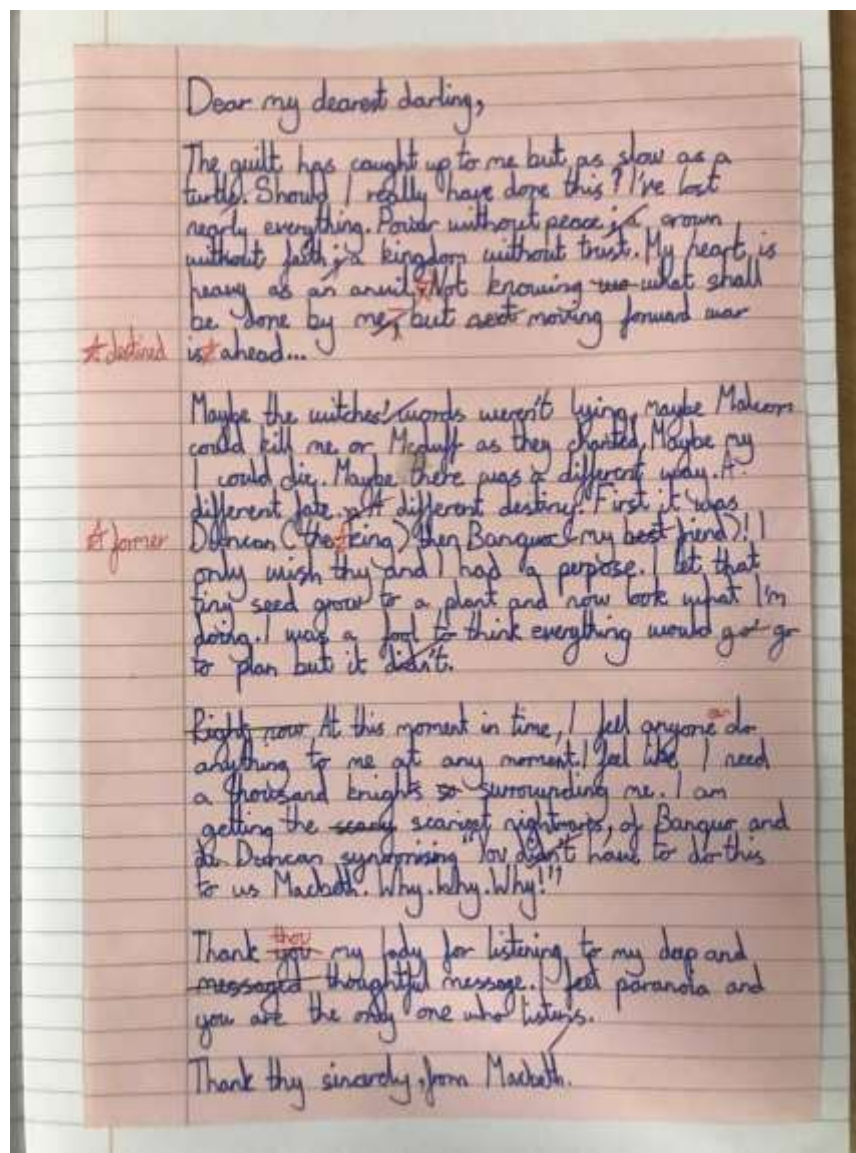 Dear my dearest darling,
The guilt has caught up to me but as slow as a
turtle. Should I really have done this? I've lost
nearly everything. Power without peace; a crown
without faith; a kingdom without trust. My heart is
heavy as an anvil. Not knowing what shall
be done by me, but moving forward war
* destined
is * ahead...
Maybe the witches' words weren't lying, maybe Malcom
could kill me or Mcduff as they chanted. Maybe my
I could die. Maybe there was a different way. A
different fate. A different destiny. First it was
* former
Duncan (the * king) then Banquo (my best friend)! I
only wish thy and I had a perpose. I let that
tiny seed grow to a plant and now look what I'm
doing. I was a fool to think everything would go
to plan but it didn't.
Right now At this moment in time, I feel anyone can do
anything to me at any moment. I feel like I need
a thousand knights so surrounding me. I am
getting the scary scariest nightmares, of Banquo and
Duncan "You didn't have to do this
to us Macbeth. Why. Why. Why!"
Thank you thou my lady for listening to my deep and
messaged thoughtful message. I feel paranoia and
you are the only one who listens.
Thank thy sincerely, from Macbeth.